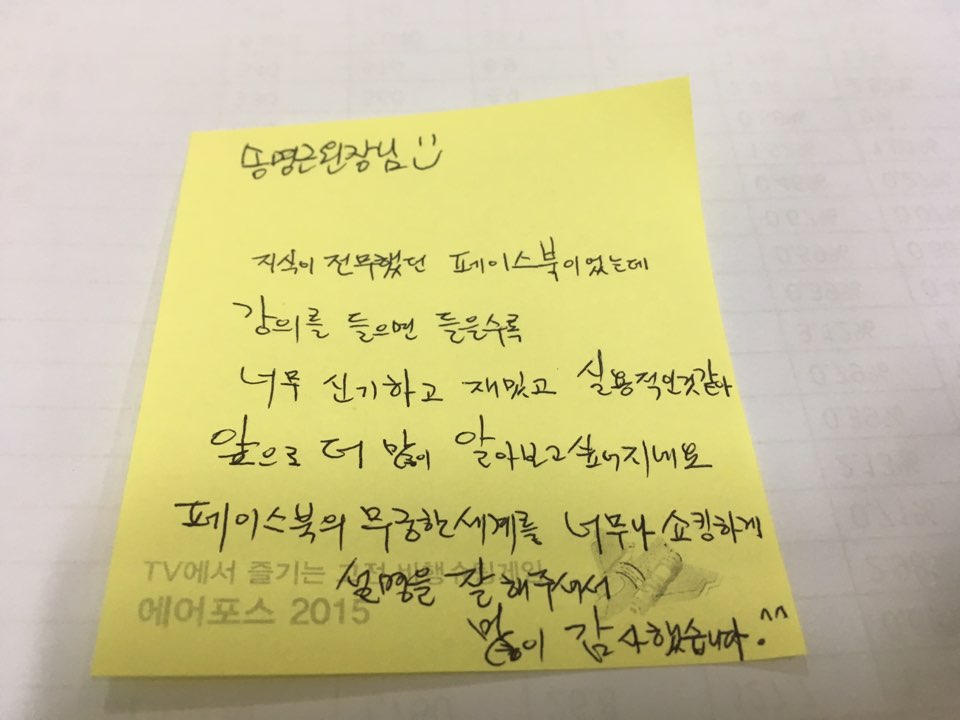 송명근원장님 :)
지식이 전무했던 페이스북이었는데
강의를 들으면 들을수록
너무 신기하고 재밌고 실용적인것같아
앞으로 더 많이 알아보고싶어지네요
페이스북의 무궁한세계를 너무나 쇼킹하게
TV에서 즐기는 고전 비행슈팅게임
설명을 잘 해주셔서
에어포스 2015
많이 감사했습니다.^^